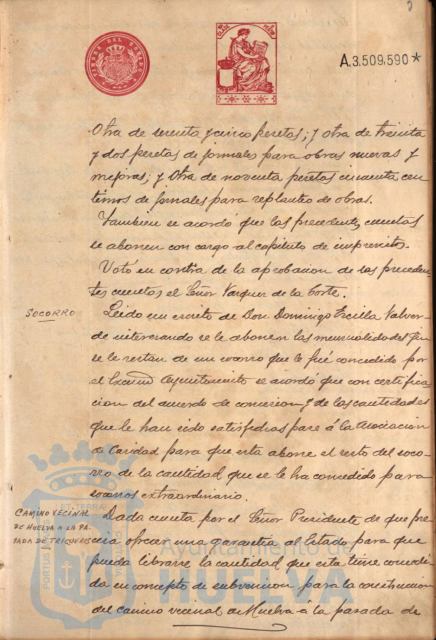 A.3.509.590*
Otra de sesenta y cinco pesetas; y otra de treinta
y dos pesetas de jornales para obras nuevas y
mejoras; y otra de noventa pesetas cincuenta cen-
timos de jornales para replanteo de obras.
Tambien se acordó que las precedentes cuentas
se abonen con cargo al capitulo de imprevistos.
Votó en contra de la aprobacion de las preceden-
tes cuentas el Señor Vazquez de la Corte.
SOCORRO
Leido un escrito de Don Domingo Ercilla Valver-
de interesando se le abonen las mensualidades que
se le restan de un socorro que le fué concedido por
el Excmo Ayuntamiento se acordó que con certifica-
cion del acuerdo de concesion y de las cantidades
que le han sido satisfechas pase á la Asociacion
de Caridad para que esta abone el resto del soco-
rro de la cantidad que se le ha concedido para
socorros extraordinario.
CAMINO VECINAL
DE HUELVA A LA PA-
RADA DE TRIGUEROS
Dada cuenta por el Señor Presidente de que pre-
cisa ofrecer una garantia al Estado para que
pueda librarse la cantidad que esta tiene concedi-
da en concepto de subvencion para la construccion
del camino vecinal de Huelva á la parada de
Ayuntamiento de
HUELVA